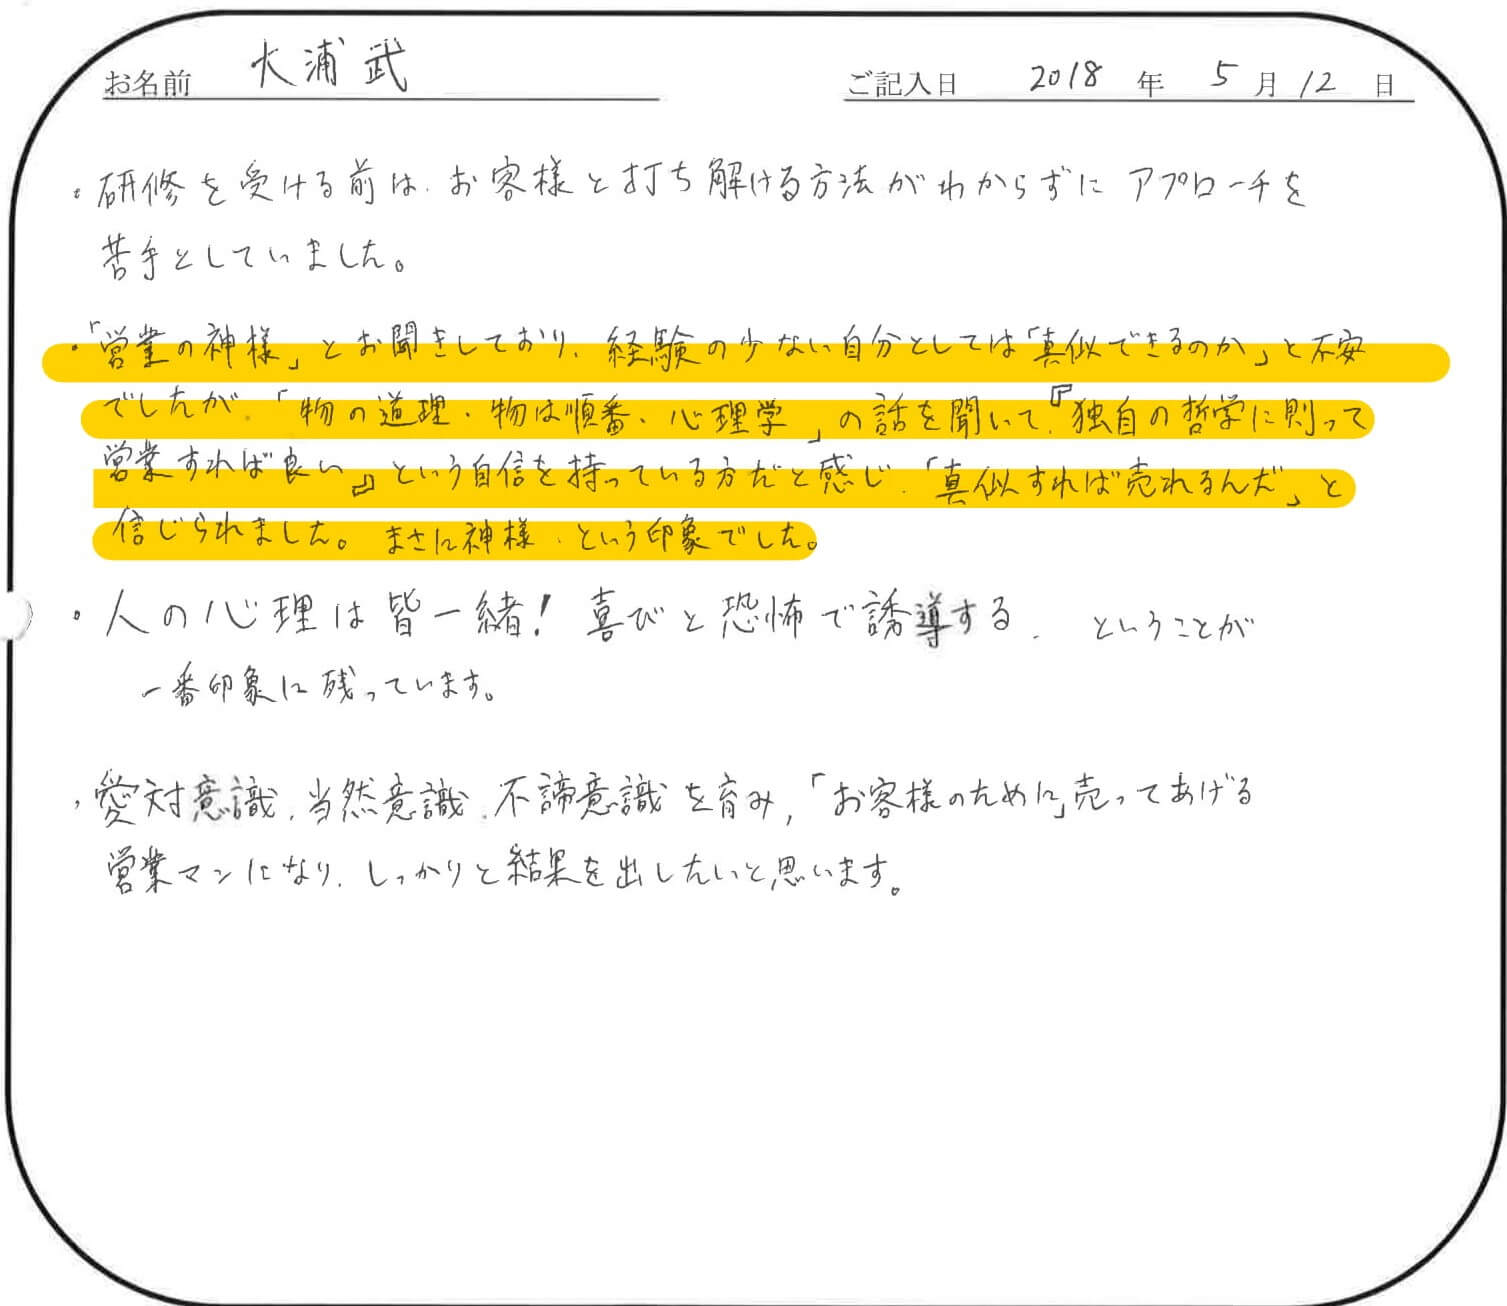 お名前 大浦武 ご記入日 2018 年 5 月 12 日
・研修を受ける前は、お客様と打ち解ける方法がわからずに アプローチを
苦手としていました。
・「営業の神様」とお聞きしており、経験の少ない自分としては「真似できるのか」と不安
でしたが、「物の道理・物は順番・心理学」の話を聞いて、『独自の哲学に則って
営業すれば良い』という自信を持っている方だと感じ、「真似すれば売れるんだ」と
信じられました。まさに神様、という印象でした。
・人の心理は皆一緒！喜びと恐怖で誘導する、ということが
一番印象に残っています。
・愛対意識、当然意識、不諦意識を育み、「お客様のために」売ってあげる
営業マンになり、しっかりと結果を出したいと思います。